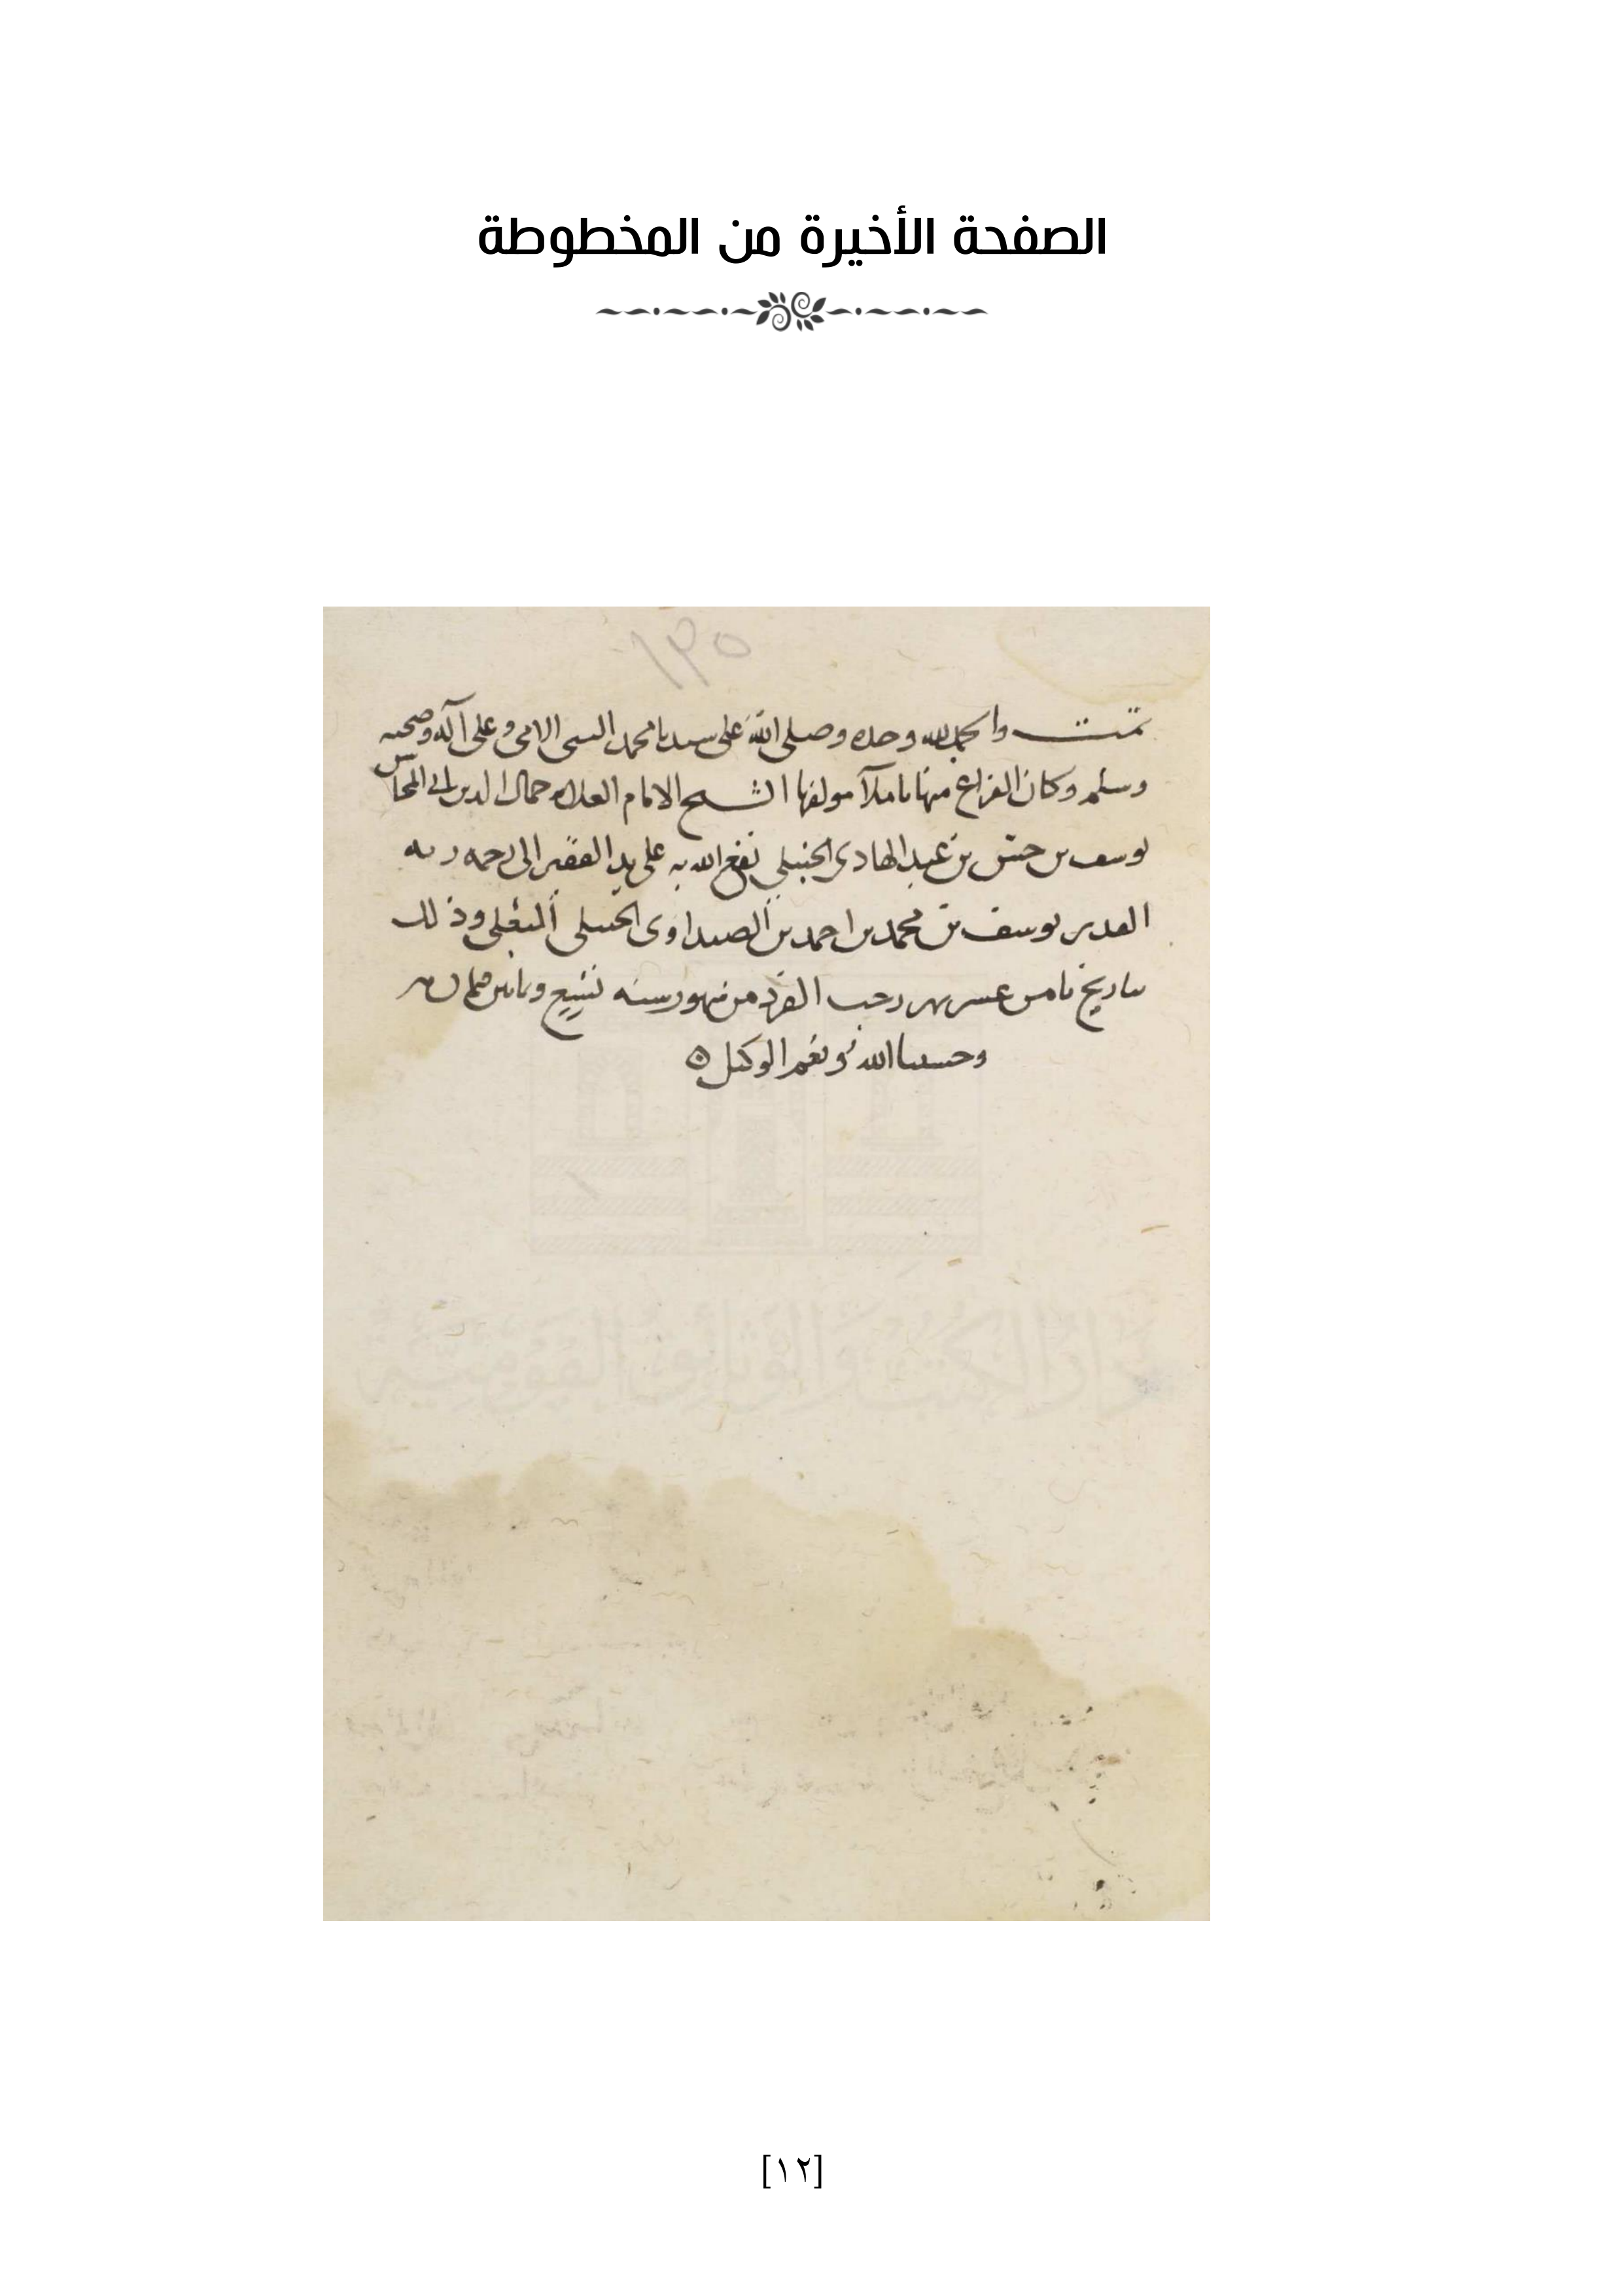 الصفحة الأخيرة من المخطوطة
١٣٥
تمت والحمد لله وحده وصلى الله على سيدنا محمد النبي الامي وعلى آله وصحبه
وسلم وكان الفراغ منها باملآ مولفها الشيخ الامام العلامه جمال الدين ابي المحاسن
يوسف بن حسن بن عبد الهادي الحنبلي نفع الله به على يد الفقير الى رحمه ربه
القدير يوسف بن محمد بن احمد بن الصيداوي الحنبلي وذلك
بتاريخ ثامن عشر شهر رجب الفرد من شهور سنه وثمانين
وحسبنا الله ونعم الوكيل
دار الكتب والوثائق القومية
[١٢]